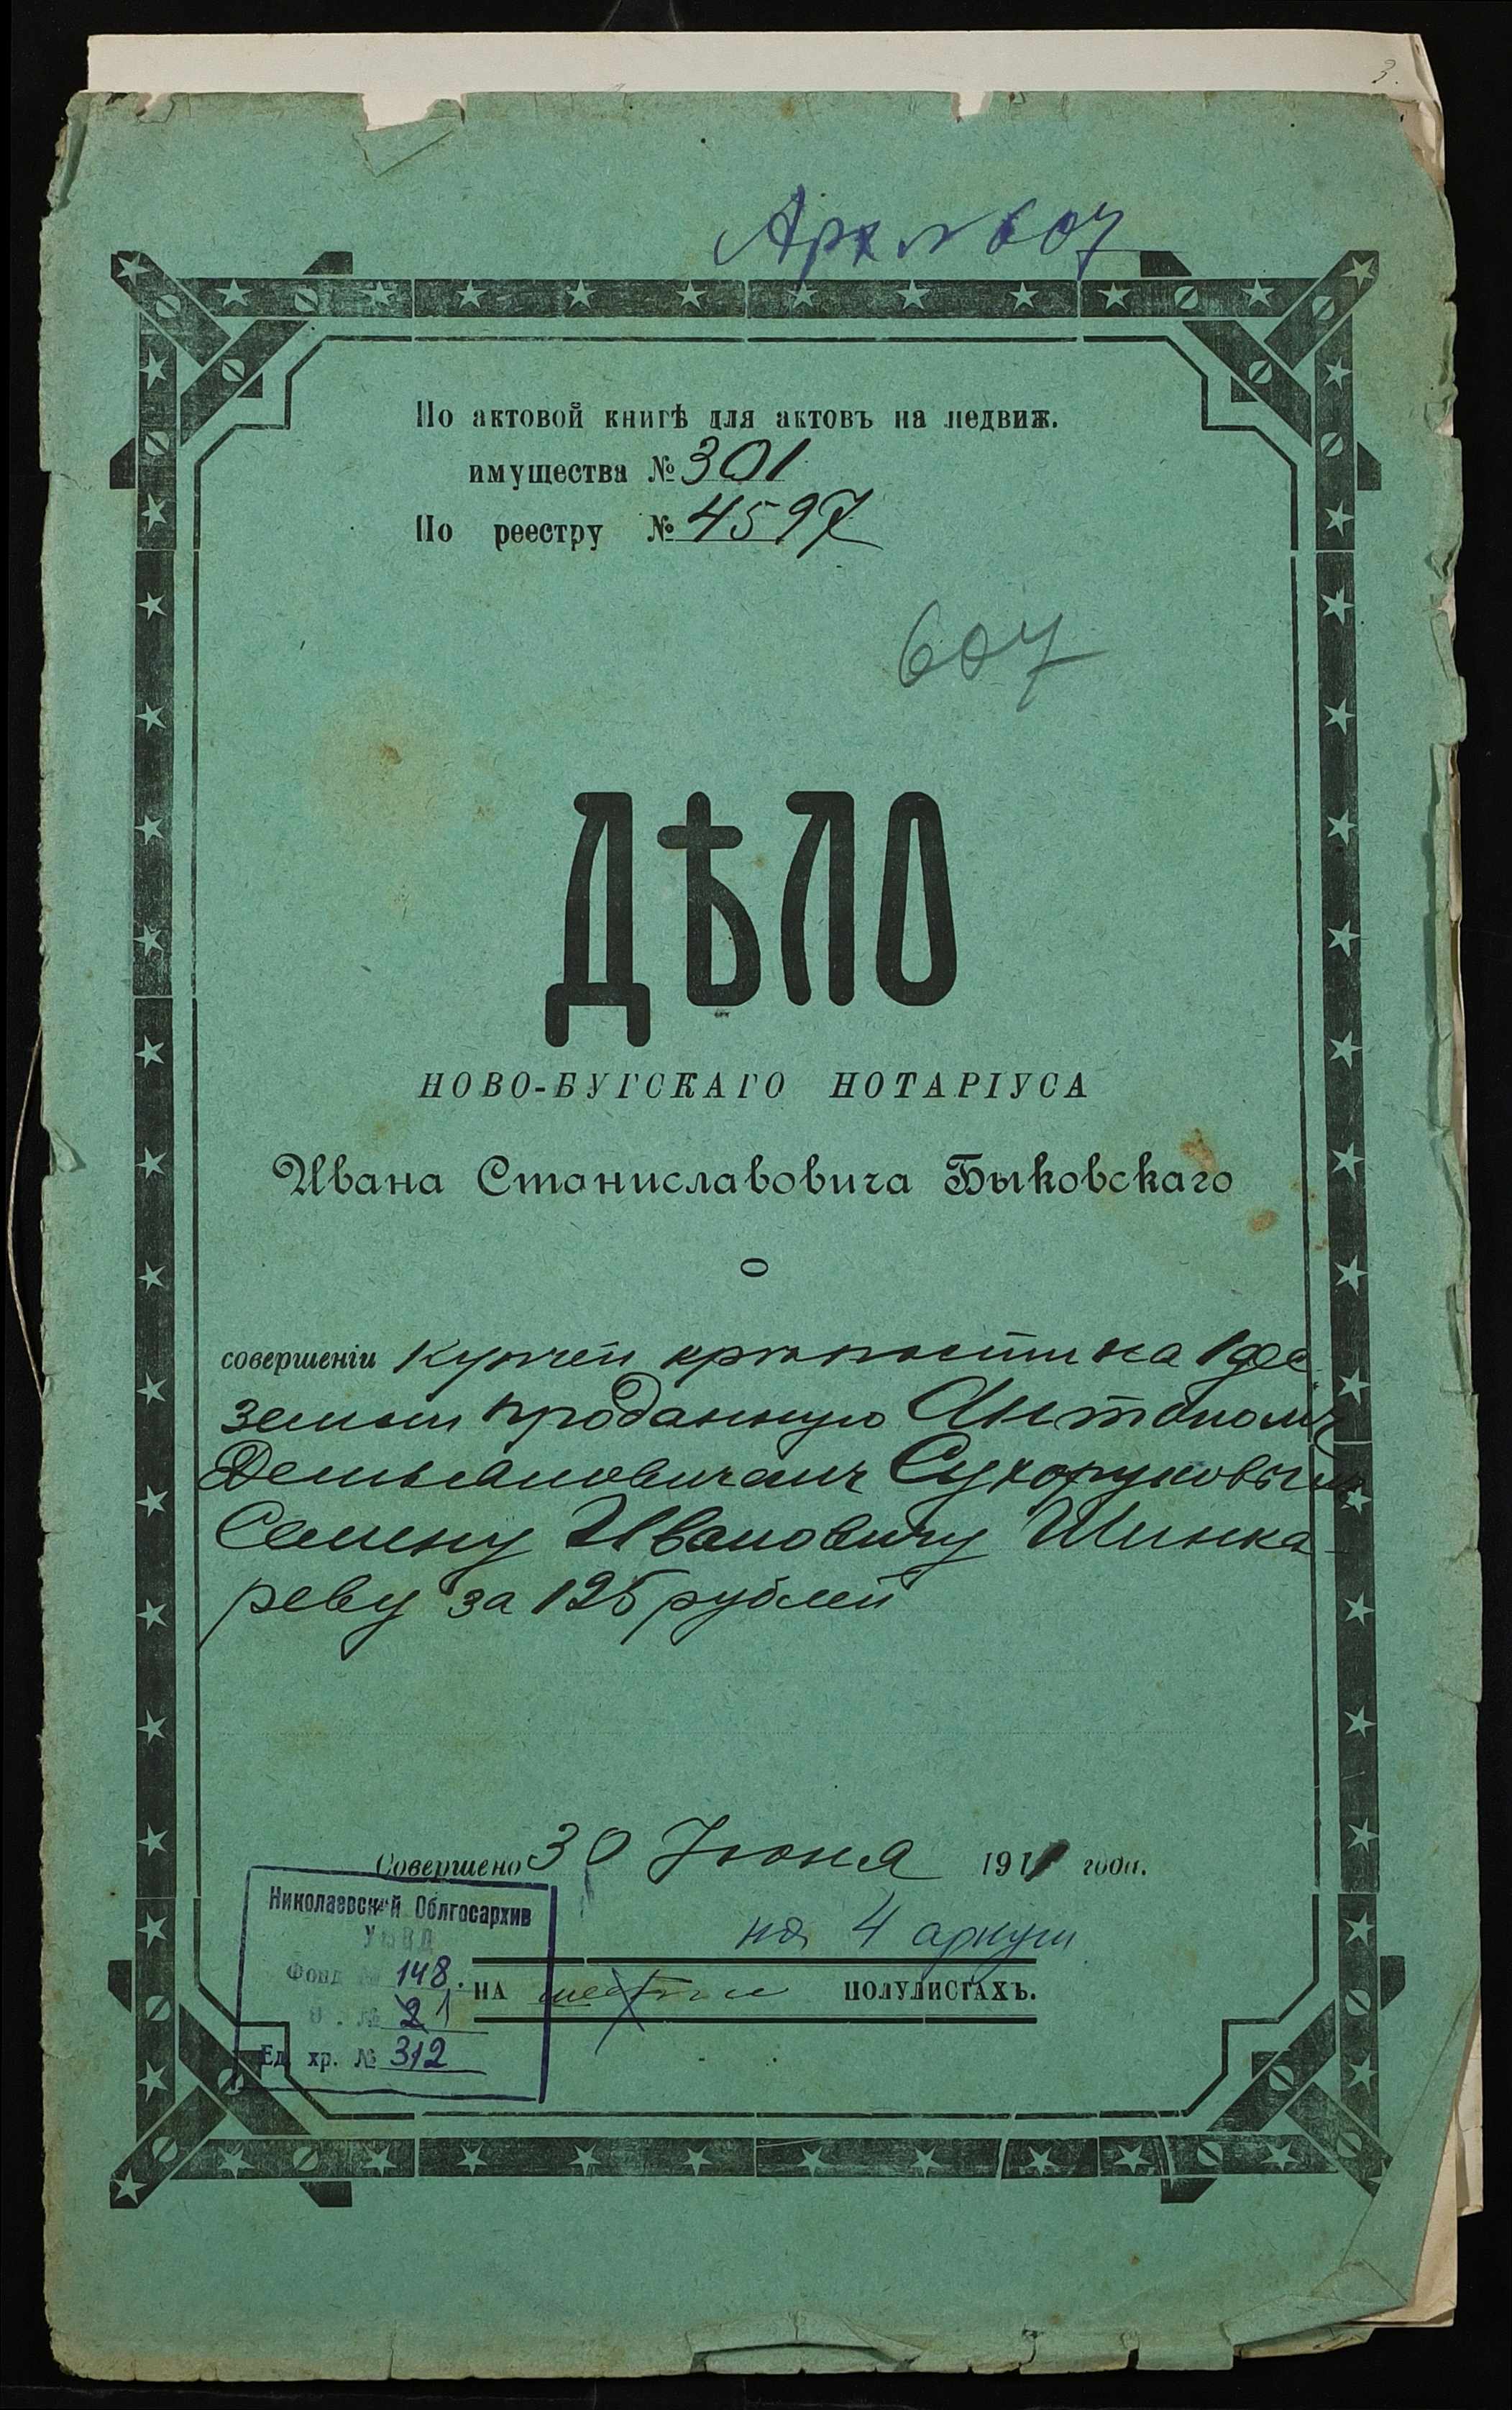 3.
Арх № 607
По актовой книгѣ для актовъ на недвиж.
имущества № 301
По реестру № 4597
607
ДѢЛО
НОВО-БУГСКАГО НОТАРІУСА
Ивана Станиславовича Быковскаго
О
совершеніи купчей крѣпости на 1 дес.
земли проданную Антономъ
Демьяновичемъ Сухоруковымъ
Семену Ивановичу Шинка-
реву за 125 рублей
Совершено 30 Іюня 1911 года.
на 4 аркуш
НА шести ПОЛУЛИСТАХЪ.
Николаевский Облгосархив
УМВД
Фонд № 148.
О . № 21
Ед. хр. № 312